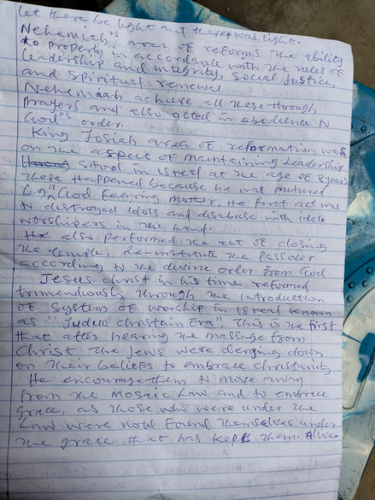 let there be light and there was light.
Nehemiah's area of reforges the ability
to properly in accordance with the rules of
leadership and integrity, social justice,
and spiritual renewal
Nehemiah achieve all these through
prayers and also acted in obedience to
God's order.
King Josiah area of reformation was
on the aspect of maintaining Leadership
school in Isreal at the age of 8 years
These happened because he was nurtured
by a God fearing matter, He first act was
to distroyed idols and disabuse with idols
worshipers in the land.
He also performed the act of closing
the temple, re-institute the passover
according to the divine order from God
Jesus christ in his time reformed
tremendously through the introduction
of System of worship in Isreal known
as "Judeo christain Era". This is the first
that after hearing the message from
Christ, the Jews were denying down
on their beliefs to embrace christanity
He encourage them to move away
from the Mosaic Law and to embrace
grace, as those who were under the
Law were now found themselves under
the grace that has kept them Alive